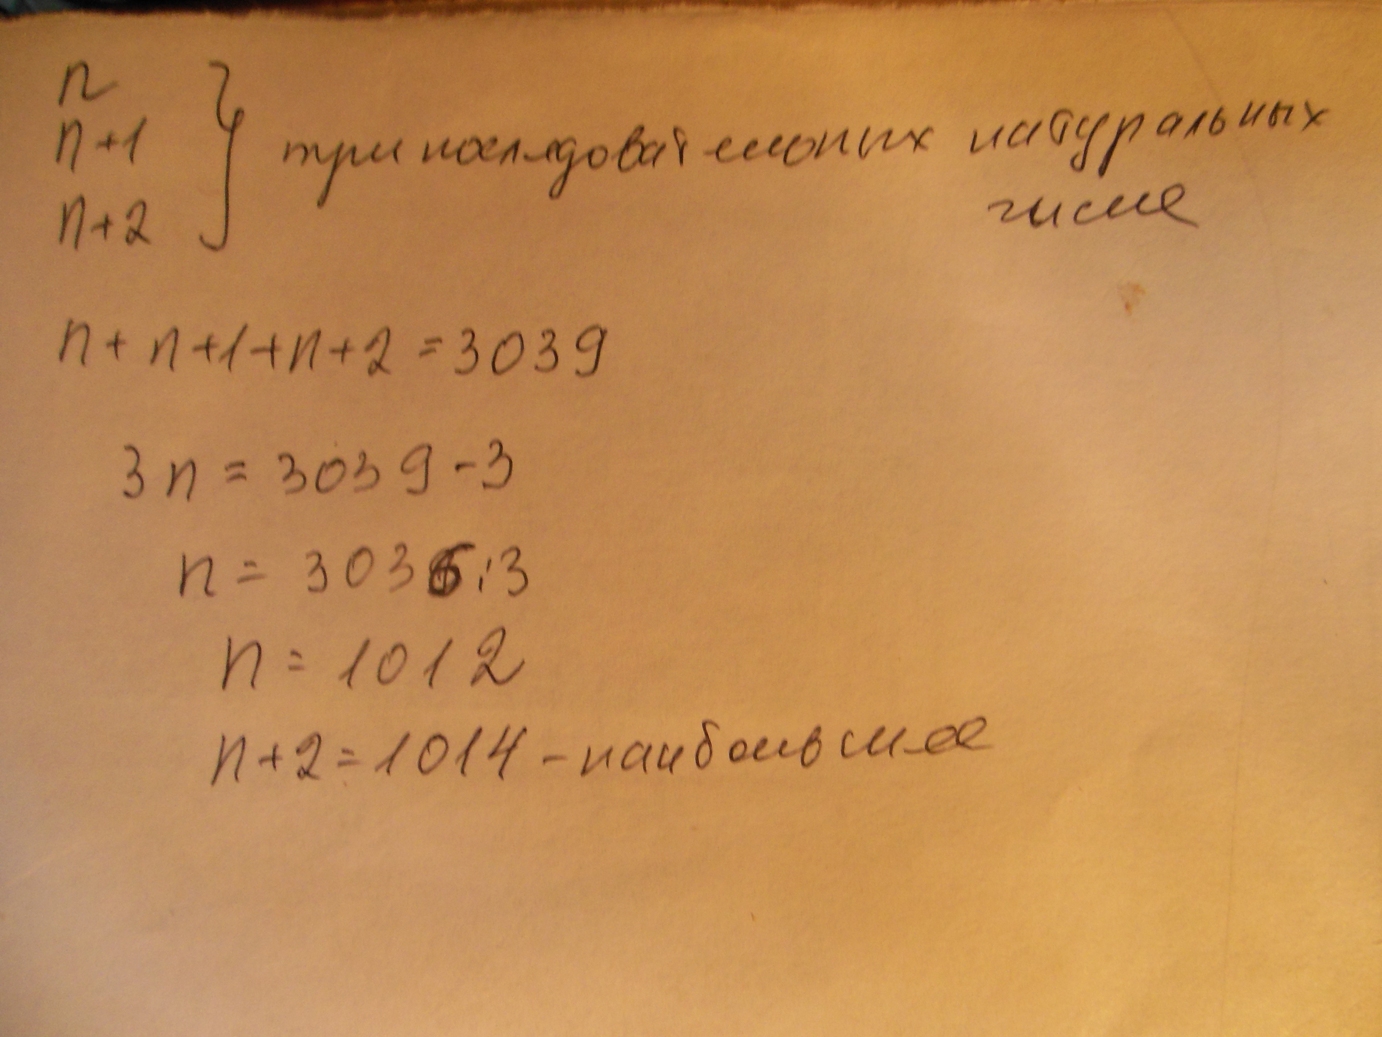 n
n+1
n+2
три последовательных натуральных
числа
n + n+1+n+2 = 3039
3n = 3039-3
n = 3036:3
n = 1012
n+2=1014 - наибольшее